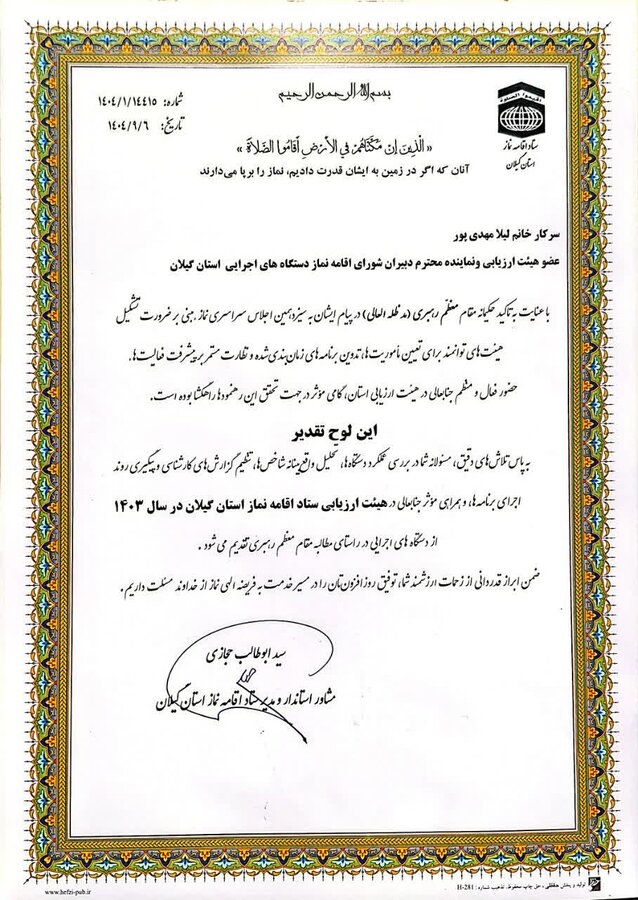 بسم الله الرحمن الرحیم
شماره: ۱۴۰۴/۱/۱۴۴۱۵
تاریخ: ۱۴۰۴/۹/۶
اقیموا الصلاة
ستاد اقامه نماز
استان گیلان
« الَّذِینَ إِن مَّكَّنَّاهُمْ فِي الأَرْضِ أَقَامُوا الصَّلاَةَ »
آنان که اگر در زمین به ایشان قدرت دادیم، نماز را برپا می‌دارند
سرکار خانم لیلا مهدی پور
عضو هیئت ارزیابی ونماینده محترم دبیران شورای اقامه نماز دستگاه های اجرایی استان گیلان
با عنایت به تاکید حکیمانه مقام معظم رهبری (مد ظله العالی) در پیام ایشان به سیزدهمین اجلاس سراسری نماز، مبنی بر ضرورت تشکیل
هیئت‌های توانمند برای تعیین مأموریت‌ها، تدوین برنامه های زمان‌بندی شده و نظارت مستمر بر پیشرفت فعالیت‌ها.
حضور فعال و منظم جنابعالی در هیئت ارزیابی استان، گامی مؤثر در جهت تحقق این رهنمودها راهگشا بوده است.
این لوح تقدیر
به پاس تلاش‌های دقیق، مسئولانه شما در بررسی عملکرد دستگاه‌ها، تحلیل واقع‌بینانه شاخص‌ها، تنظیم گزارش‌های کارشناسی و پیگیری روند
اجرای برنامه‌ها، و همراهی مؤثر جنابعالی در هیئت ارزیابی ستاد اقامه نماز استان گیلان در سال ۱۴۰۳
از دستگاه های اجرایی در راستای مطالبه مقام معظم رهبری تقدیم می شود .
ضمن ابراز قدردانی از زحمات ارزشمند شما، توفیق روزافزون‌تان را در مسیر خدمت به فریضه الهی نماز از خداوند مسئلت داریم .
سید ابوطالب حجازی
مشاور استاندار و مدیر ستاد اقامه نماز استان گیلان
www.hefzi-pub.ir
تولید و پخش حفظی ، حق چاپ محفوظ. تذهیب شماره : H-281